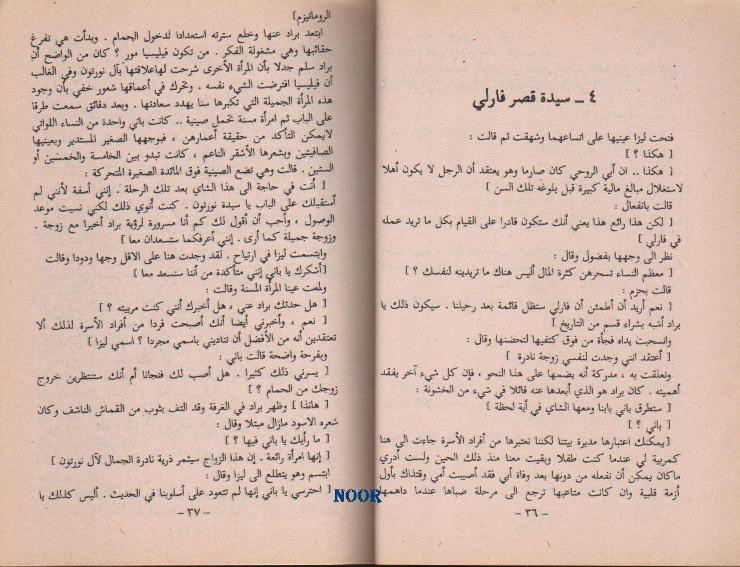 ٤ ـ سيدة قصر فارلي
فتحت ليزا عينيها على اتساعهما وشهقت ثم قالت :
[ هكذا ؟ ]
[ هكذا .. ان أبي الروحي كان صارما وهو يعتقد أن الرجل لا يكون أهلا
لاستغلال مبالغ مالية كبيرة قبل بلوغه تلك السن ]
قالت بانفعال :
[ لكن هذا رائع هذا يعني أنك ستكون قادرا على القيام بكل ما تريد عمله
في فارلي ]
نظر الى وجهها بفضول وقال :
[ معظم النساء تسحرهن كثرة المال أليس هناك ما تريدينه لنفسك ؟ ]
قالت بحزم :
[ نعم أريد أن أطمئن أن فارلي ستظل قائمة بعد رحيلنا . سيكون ذلك يا
براد أشبه بشراء قسم من التاريخ ]
وانسحبت يداه فجأة من فوق كتفيها لتحضنها وقال :
[ أعتقد انني وجدت لنفسي زوجة نادرة ]
وتعلقت به ، مدركة أنه يضمها على هذا النحو ، فإن كل شيء آخر يفقد
أهميته . كان براد هو الذي أبعدها عنه قائلا في شيء من الخشونة :
[ ستطرق باني بابنا ومعها الشاي في أية لحظة ]
[ باني ؟ ]
[ يمكنك اعتبارها مديرة بيتنا لكننا نعتبرها من أفراد الأسرة جاءت الى هنا
كمربية لي عندما كنت طفلا وبقيت معنا منذ ذلك الحين ولست أدري
ماكان يمكن أن نفعله من دونها بعد وفاة أبي فقد أصيبت أمي وقتذاك بأول
أزمة قلبية وان كانت متاعبها ترجع الى مرحلة صباها عندما داهمها
ـ ٣٦ ـ
الروماتيزم]
ابتعد براد عنها وخلع سترته استعدادا لدخول الحمام . وبدأت هي تفرغ
حقائبها وهي مشغولة الفكر . من تكون فيليسيا مور ؟ كان من الواضح أن
براد سلم جدلا بأن المرأة الأخرى شرحت لهاعلاقتها بآل نورتون وفي الغالب
أن فيليسيا افترضت الشيء نفسه . وتحرك في أعماقها شعور خفي بأن وجود
هذه المرأة الجميلة التي تكبرها سنا يهدد سعادتها . وبعد دقائق سمعت طرقا
على الباب ثم امرأة مسنة تحمل صينية .. كانت باني واحدة من النساء اللواتي
لايمكن التأكد من حقيقة أعمارهن ، فبوجهها الصغير المستدير وبعينيها
الصافيتين وبشعرها الأشقر الناعم ، كانت تبدو بين الخامسة والخمسين أو
الستين . قالت وهي تضع الصينية فوق المائدة الصغيرة المتحركة :
[ أنت في حاجة الى هذا الشاي بعد تلك الرحلة . إنني أسفة لأنني لم
أستقبلك على الباب يا سيدة نورتون . كنت أنوي ذلك لكني نسيت موعد
الوصول ، وأحب أن أقول لك كم أنا مسرورة لرؤية براد أخيرا مع زوجة .
وزوجة جميلة كما أرى . إنني أعرفكما ستسعدان معا ]
وابتسمت ليزا في ارتياح . لقد وجدت هنا على الاقل وجها ودودا وقالت
[أشكرك يا باني إنني متأكدة من أننا سنسعد معا ]
ولمعت عينا المرأة المسنة وقالت :
[ هل حدثك براد عني ، هل أخبرك أنني كنت مربيته ؟ ]
[ نعم ، وأخبرني أيضا أنك أصبحت فردا من أفراد الأسرة لذلك ألا
تعتقدين أنه من الأفضل أن تناديني باسمي مجردا ؟ اسمي ليزا ]
وبفرحة واضحة قالت باني :
[ يسرني ذلك كثيرا . هل أصب لك فنجانا أم أنك ستنتظرين خروج
زوجك من الحمام ؟ ]
[ هانذا ] وظهر براد في الغرفة وقد التف بثوب من القماش الناشف وكان
شعره الاسود مازال مبتلا وقال :
[ ما رأيك يا باني فيها ؟ ]
[ إنها امرأة رائعة . إن هذا الزواج سيثمر ذرية نادرة الجمال لآل نورتون ]
ابتسم وهو يتطلع الى ليزا وقال :
[ احترسي يا باني إنها لم تتعود على أسلوبنا في الحديث . أليس كذلك يا
ـ ٣٧ ـ
NOOR